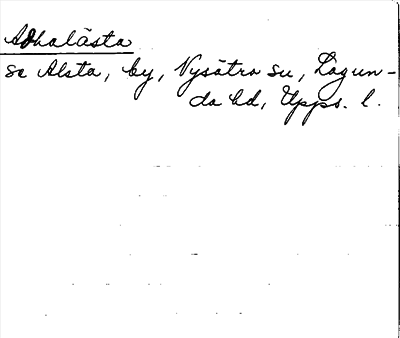 Adhalästa
se Alsta, by, Nysätra sn, Lagun-
da hd, Upps. l.